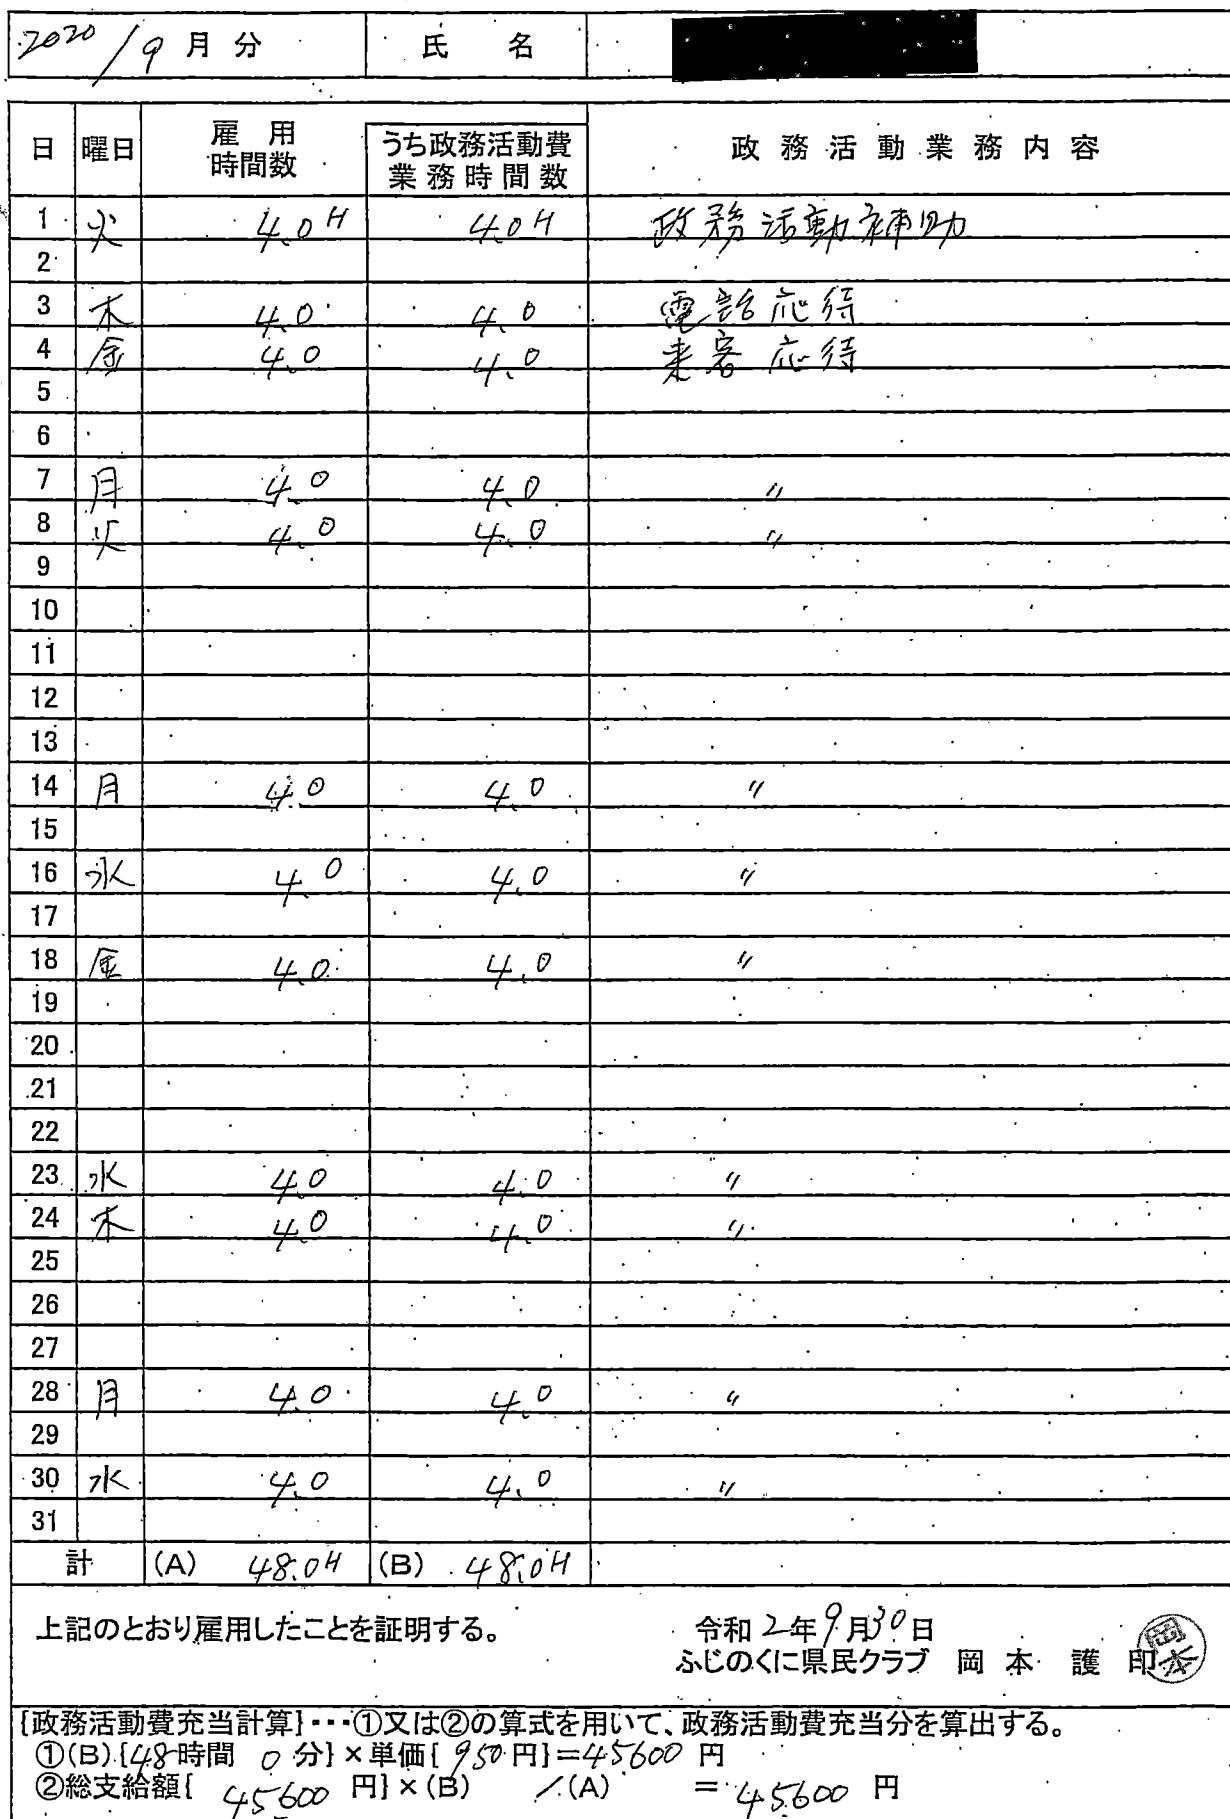 2020/9月分 氏名
日 曜日 雇用時間数 うち政務活動費業務時間数 政務活動業務内容
1 火 4.0H 4.0H 政務活動補助
2
3 木 4.0 4.0 電話応待
4 金 4.0 4.0 来客応待
5
6
7 月 4.0 4.0 〃
8 火 4.0 4.0 〃
9
10
11
12
13
14 月 4.0 4.0 〃
15
16 水 4.0 4.0 〃
17
18 金 4.0 4.0 〃
19
20
21
22
23 水 4.0 4.0 〃
24 木 4.0 4.0 〃
25
26
27
28 月 4.0 4.0 〃
29
30 水 4.0 4.0 〃
31
計 (A) 48.0H (B) 48.0H
上記のとおり雇用したことを証明する。 令和2年9月30日
ふじのくに県民クラブ 岡本 護 印 岡本
[政務活動費充当計算]・・・①又は②の算式を用いて、政務活動費充当分を算出する。
①(B)[48時間 0分]×単価[950円]=45600円
②総支給額[45600円]×(B)/(A) =45600円